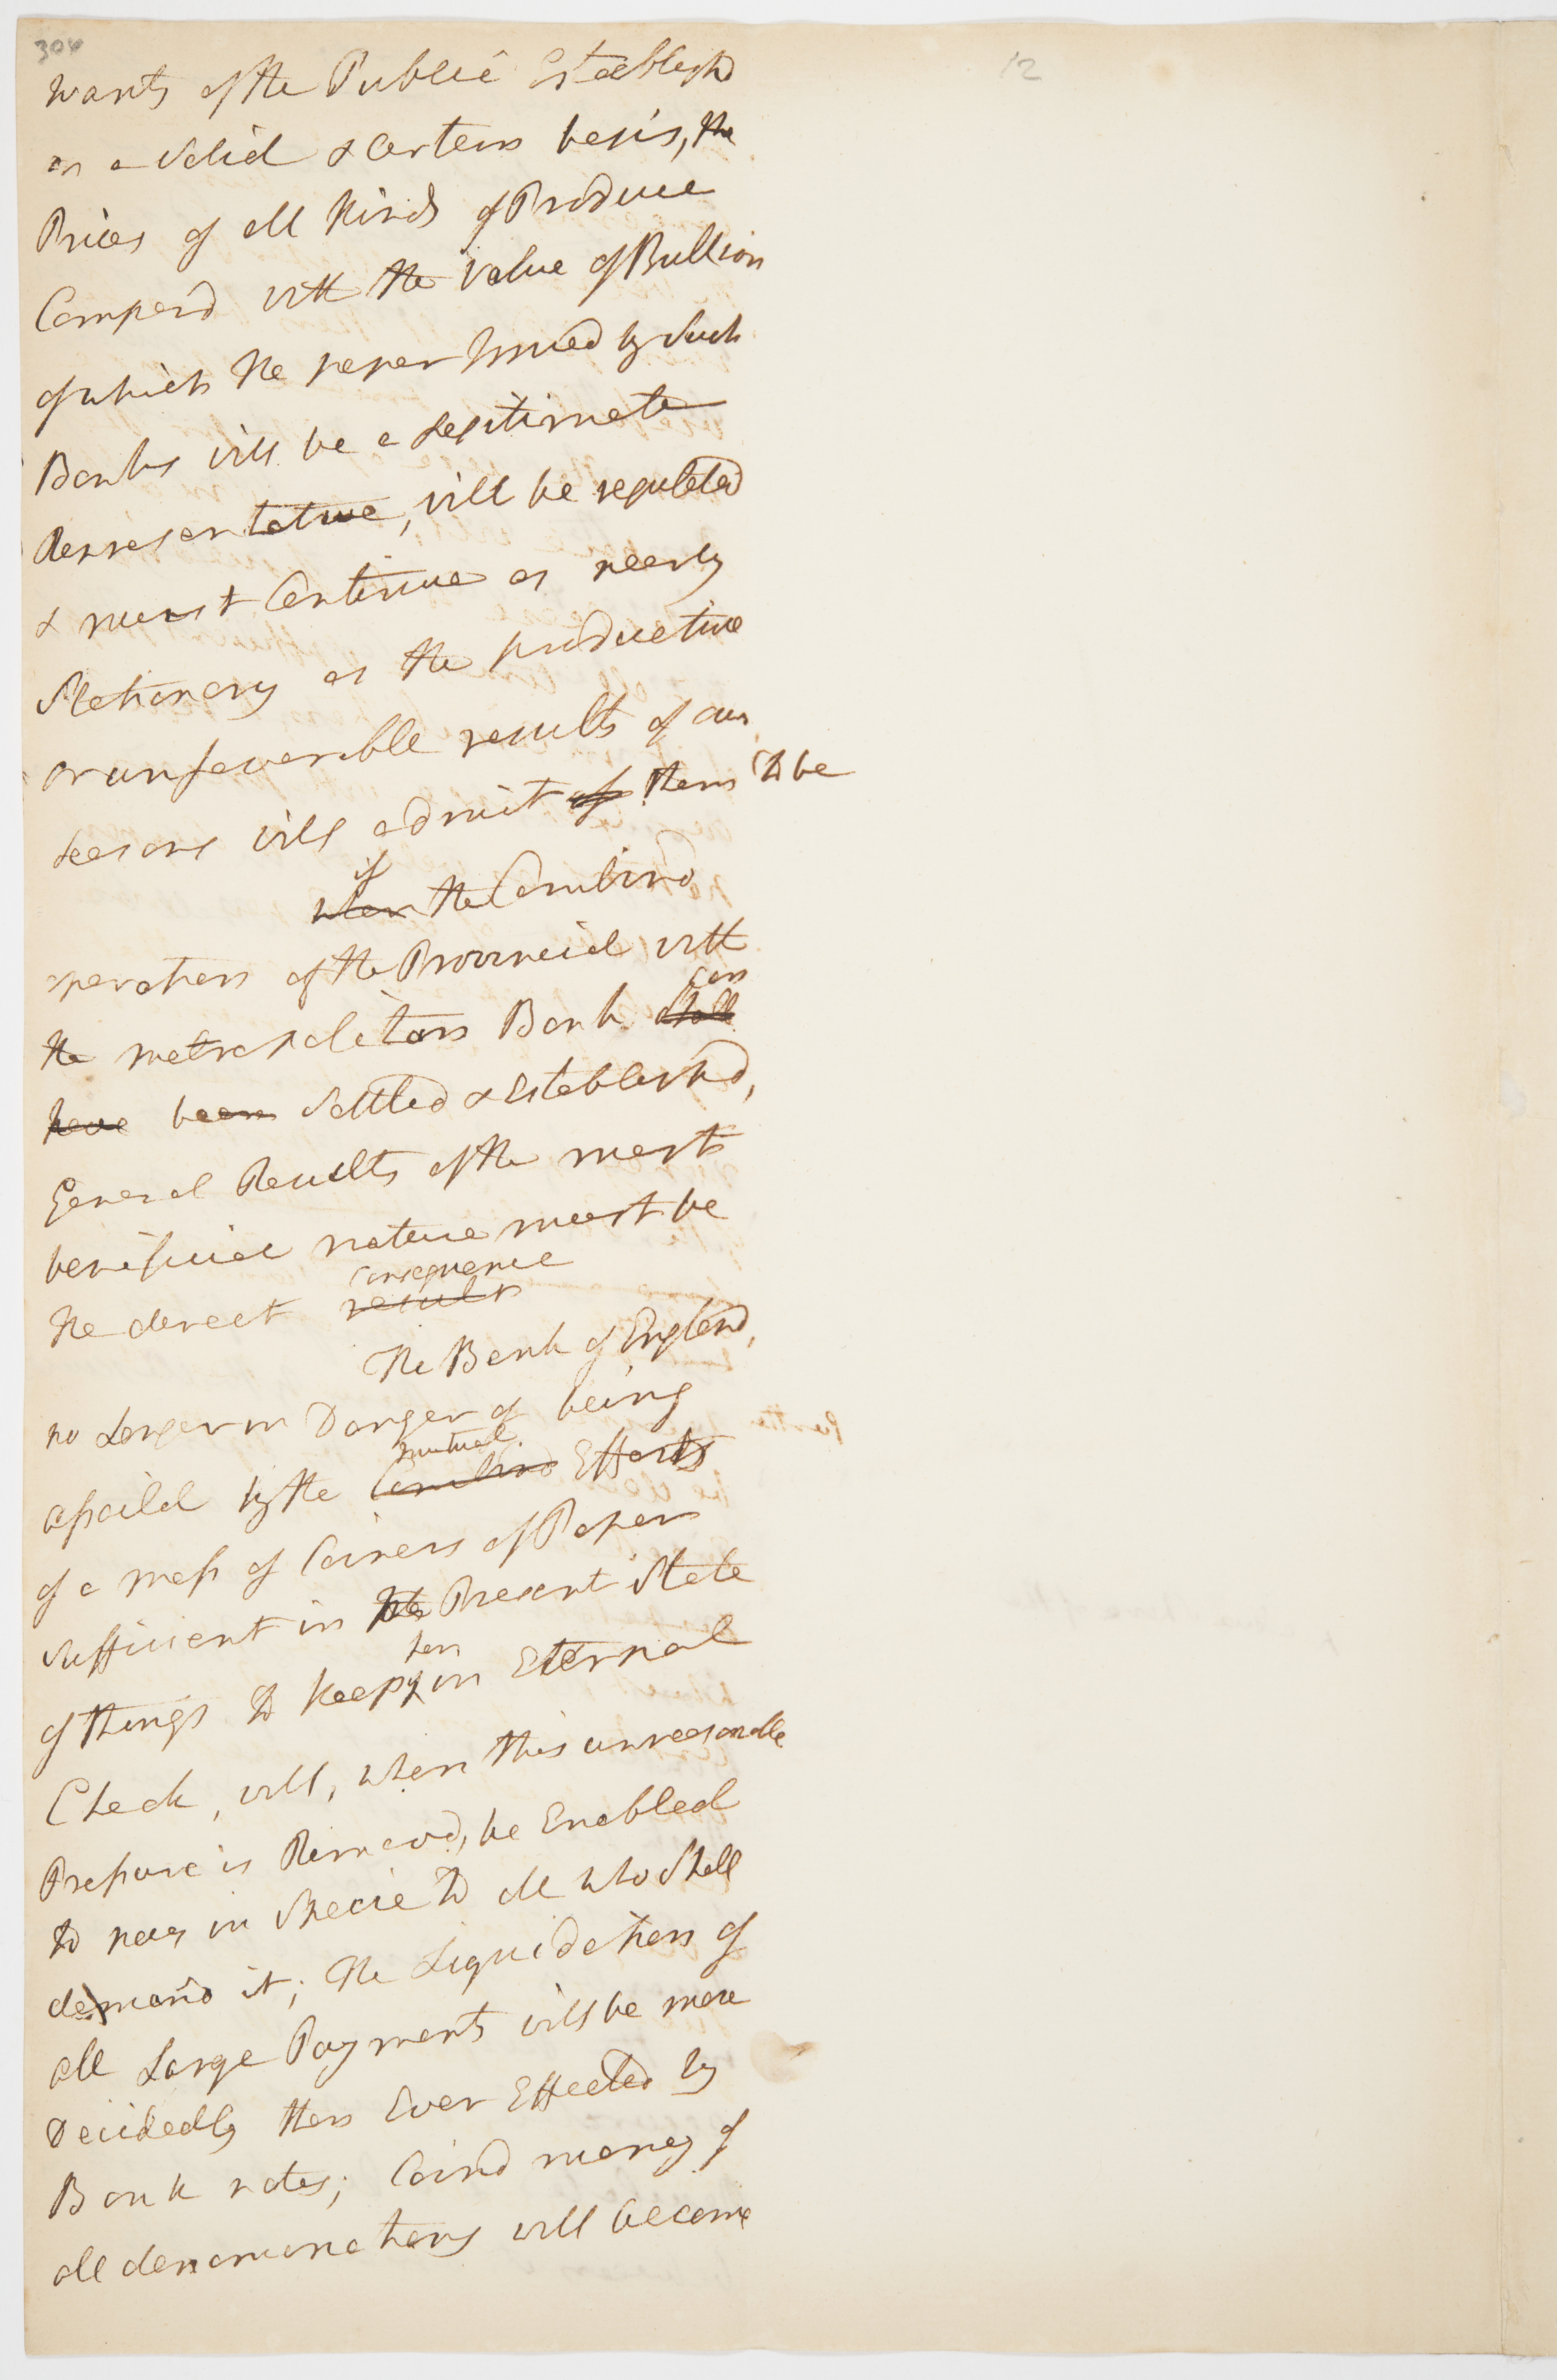 304
12
wants of the Public Establishd
on a Solid & Certain basis, the
Prices of all Kinds of Produce
Compard with the Value of Bullion
of which the paper Issued by Such
Banks will be a Legitimate
Representative, will be regulated
& must Continue as nearly
Stationary as the productive
or unfavorable results of our
Seasons will admit of them to be
if
when the Combind
operation of the Provincial with
can
the metropolitan Bank shall
have been Settled & Establishd,
General Results of the most
beneficial nature must be
consequence
the direct results
The Bank of England,
no Longer in Danger of being
mutual
assaild by the Combind Efforts
of a mass of Coiners of Paper
Sufficient in the Present State
her
of things to keep in Eternal
Check, will, when this unreasonable
Pressure is Removd, be Enabled
to pay in Specie to all who Shall
demand it; The Liquidation of
all Large Payments will be more
Decidedly then Ever Effected by
Bank notes; Coind money of
all denominations will become